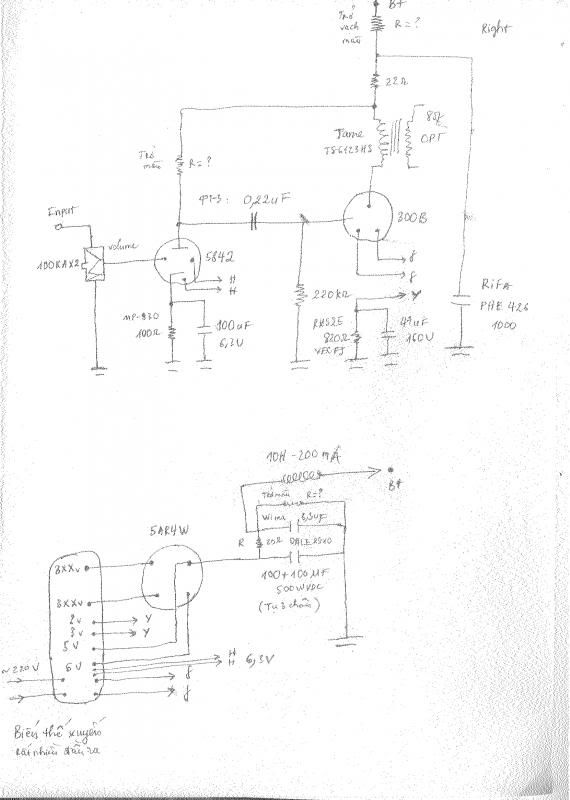 B+
Trở
vạch
màu
R = ?
Right
22Ω
8Ω
OPT
Tame
TS6123HS
Trở
màu
R = ?
ФТ-3: 0,22uF
300B
Input
volume
5842
100KAX2
H
H
f
f
Y
220kΩ
MP-930
100Ω
100uF
6,3V
820Ω
47uF
160V
RIFA
PHE 426
1000
10H - 200 mA
B+
Trở màu R=?
Wima 3,3uF
5AR4W
R
DALE RS10
100+100µF
500WVDC
(Tụ 3 chân)
3XXv
3XXv
2v Y
3v Y
5V
6V
H
H 6,3V
~220V
f
f
Biến thế xuyến
Rất nhiều đầu ra